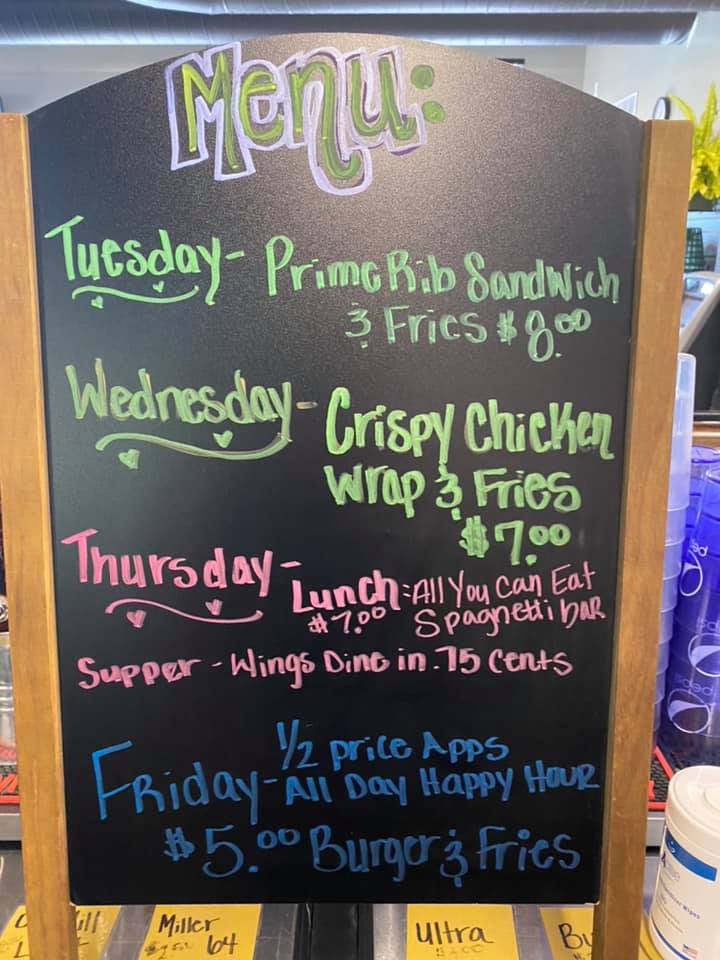 Menu:
Tuesday- Prime Rib Sandwich
& Fries $8.00
Wednesday- Crispy Chicken
Wrap & Fries
$7.00
Thursday-
Lunch: All You Can Eat
$7.00 Spaghetti Bar
Supper - Wings Dine in .75 Cents
1/2 Price Apps
Friday- All Day Happy Hour
$5.00 Burger & Fries
Miller
64
Ultra
pepsi
Wipes